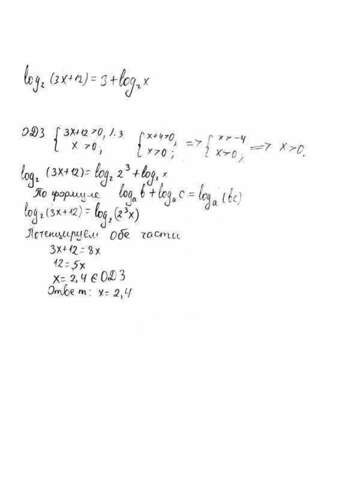 log₂ (3x+12) = 3 + log₂ x
ОДЗ { 3x+12>0, /:3 x>0; { x+4>0, x>0; => { x>-4 x>0; => x>0.
log₂ (3x+12) = log₂ 2³ + log₂ x
По формуле logₐ b + logₐ c = logₐ (bc)
log₂ (3x+12) = log₂ (2³x)
Потенцируем обе части
3x+12 = 8x
12 = 5x
x = 2,4 ∈ ОДЗ
Ответ: x = 2,4